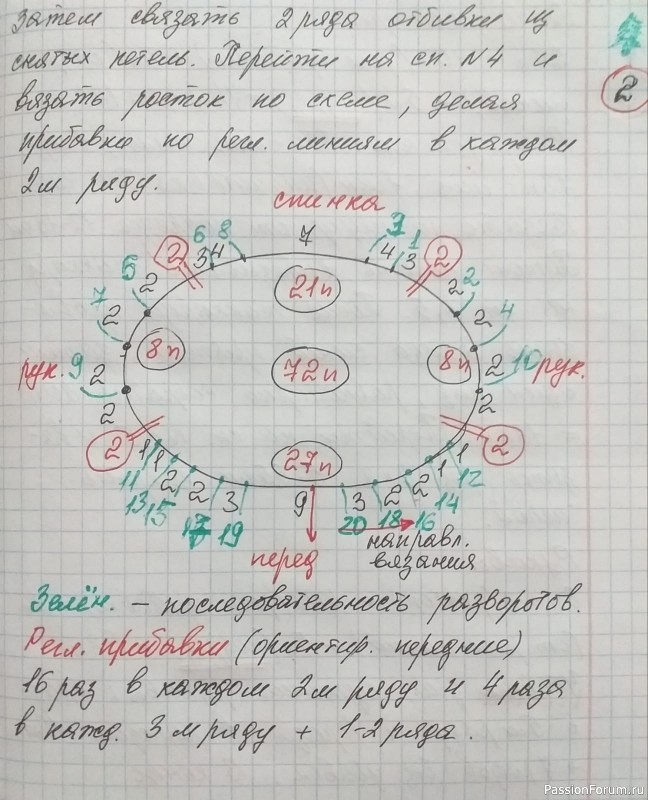 Затем связать 2 ряда отбивки из
2
снятых петель. Перейти на сп. №4 и
вязать росток по схеме, делая
прибавки по регл. линиям в каждом
2м ряду.
спинка
6 8 7 3 1
2 3 4 4 3 2
5 2 21п 2 2
7 2 2 4
8п 72п 8п
рук. 9 2 2 10 рук.
2 2
2 27п 2
11 1 1 1 1 12
13 15 2 2 3 9 3 2 2 14
17 19 20 18 16
перед направл.
вязания
Зелён. – последовательность разворотов.
Регл. прибавки (ориентир. передние)
16 раз в каждом 2м ряду и 4 раза
в кажд. 3м ряду + 1-2 ряда.
PassionForum.ru